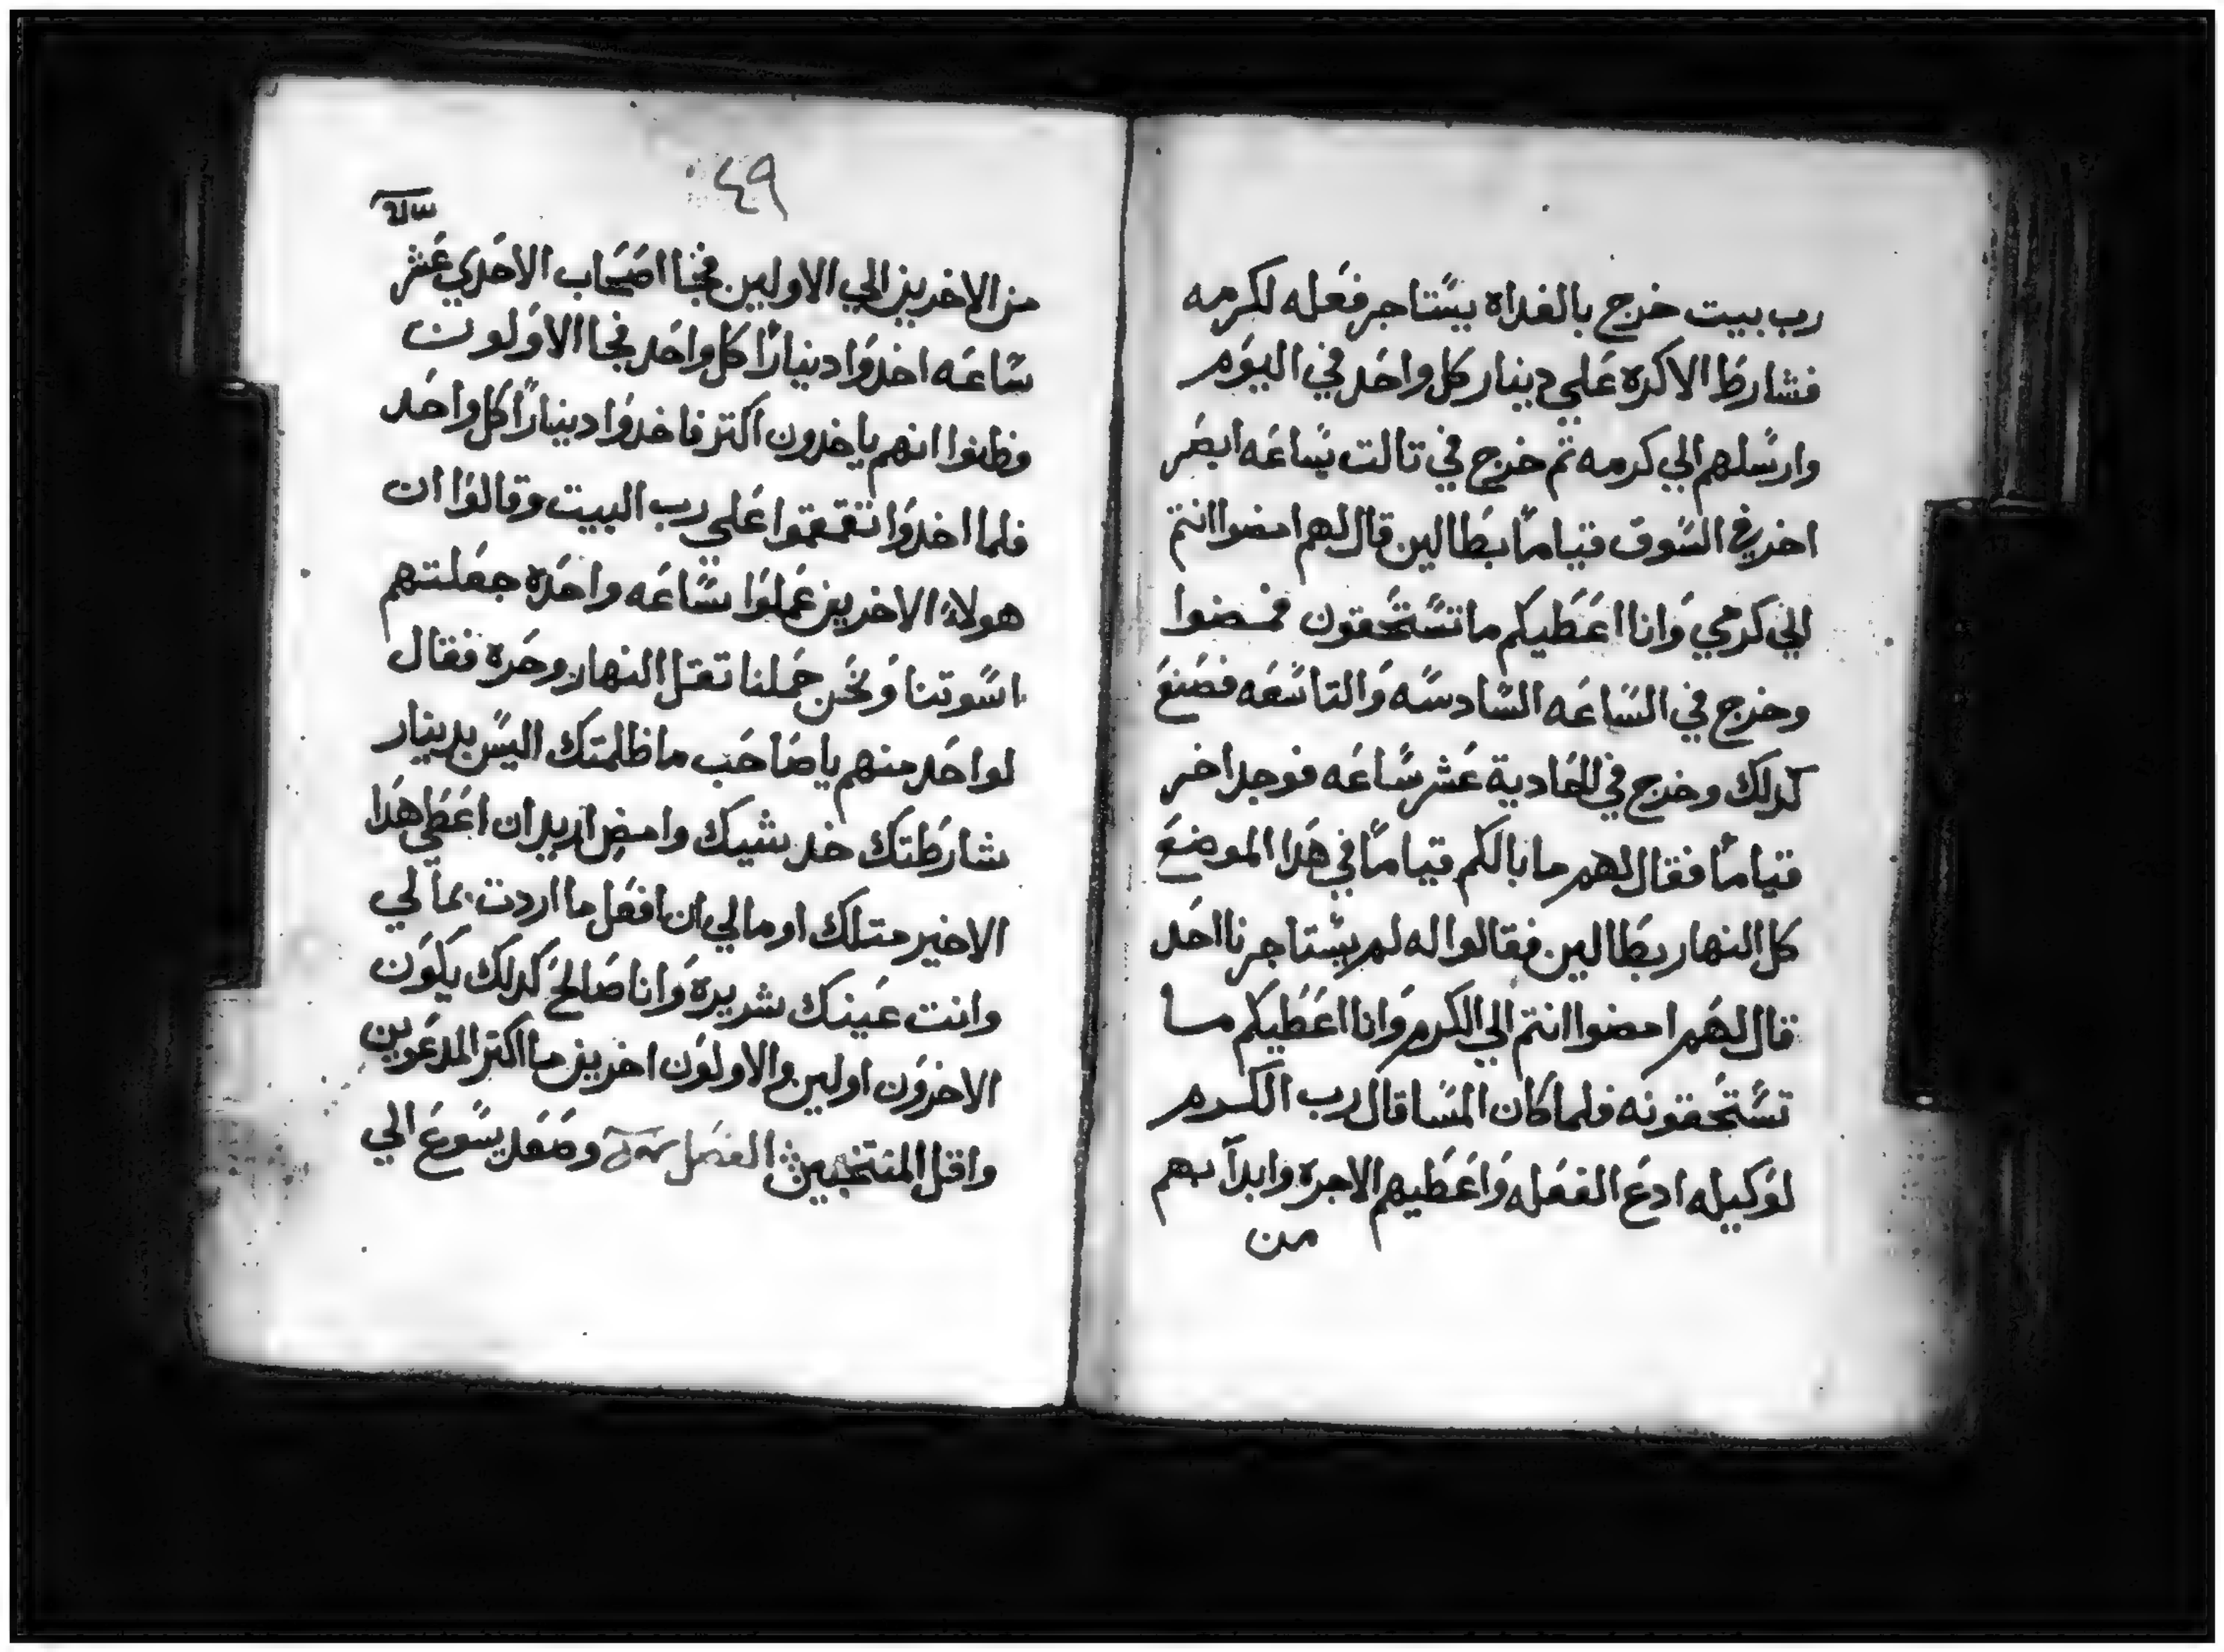 رب بيت خرج بالغداه يستاجر فعله لكرمه
فشارط الاكره علي دينار كل واحد في اليوم
وارسلهم الي كرمه تم خرج في تالت ساعه ابصر
اخر في السوق قياما بطالين قال لهم امضوا انتم
الي كرمي وانا اعطيكم ما تستحقون فمضوا
وخرج في الساعه السادسه والتاسعه فصنع
كدلك وخرج في الحادية عشر ساعه فوجد اخر
قياما فقال لهم ما بالكم قياما في هدا الموضع
كل النهار بطالين فقالوا له لم يستاجرنا احد
قال لهم امضوا انتم الي الكرم وانا اعطيكم ما
تستحقونه فلما كان المسا قال رب الكرم
لوكيله ادع الفعله واعطيهم الاجره وابدا بهم
من
٤٩
من الاخرين الي الاولين فجا اصحاب الاحدي عشر
ساعه اخدوا دينارا كل واحد فجا الاولون
وظنوا انهم ياخدون اكتر فاخدوا دينارا كل واحد
فلما اخدوا تقمقموا علي رب البيت وقالوا ان
هولاء الاخرين عملوا ساعه واحده جعلتهم
اسوتنا ونحن حملنا تقل النهار وحره فقال
لواحد منهم يا صاحب ما ظلمتك اليس بدينار
شارطتك خد شيك وامض اريد ان اعطي هدا
الاخير متلك او مالي ان افعل ما اردت بمالي
وانت عينك شريرة وانا صالح كدلك يكون
الاخرون اولين والاولون اخرين ما اكتر المدعوين
واقل المنتخبين الفصل وصعد يسوع الي